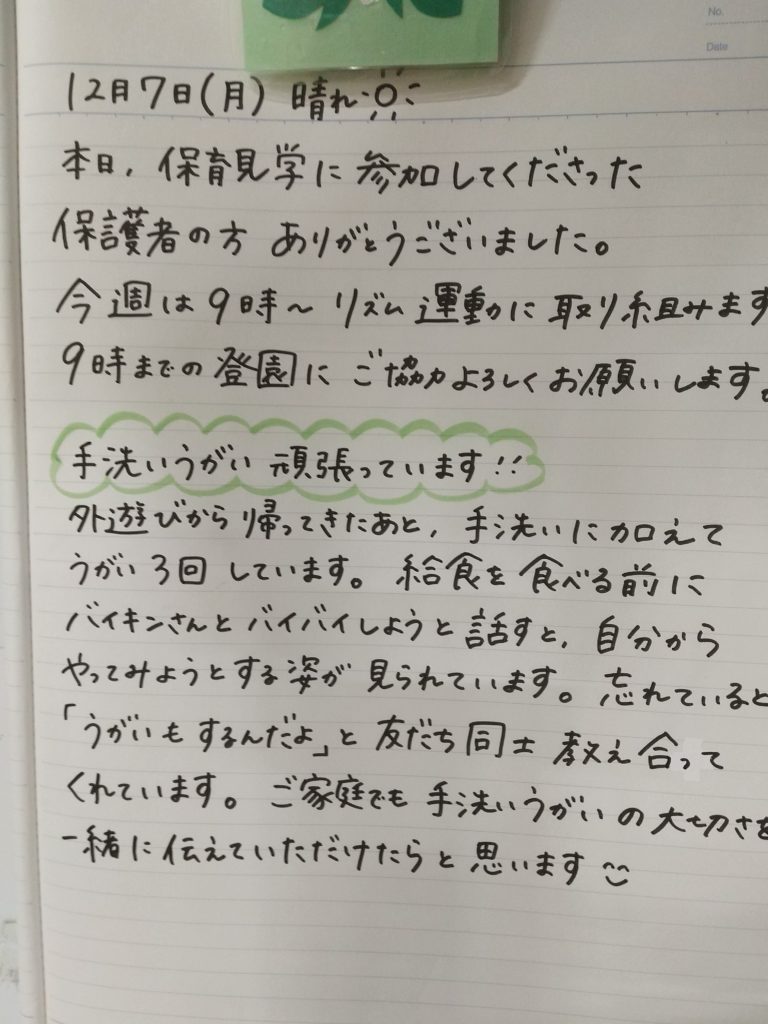 No.
Date
12月7日(月) 晴れ
本日、保育見学に参加してくださった
保護者の方 ありがとうございました。
今週は9時～リズム運動に取り組みます
9時までの登園にご協力よろしくお願いします。
手洗いうがい頑張っています!!
外遊びから帰ってきたあと、手洗いに加えて
うがい3回しています。給食を食べる前に
バイキンさんとバイバイしようと話すと、自分から
やってみようとする姿が見られています。忘れていると
「うがいもするんだよ」と友だち同士教え合って
くれています。ご家庭でも手洗いうがいの大切さを
一緒に伝えていただけたらと思います